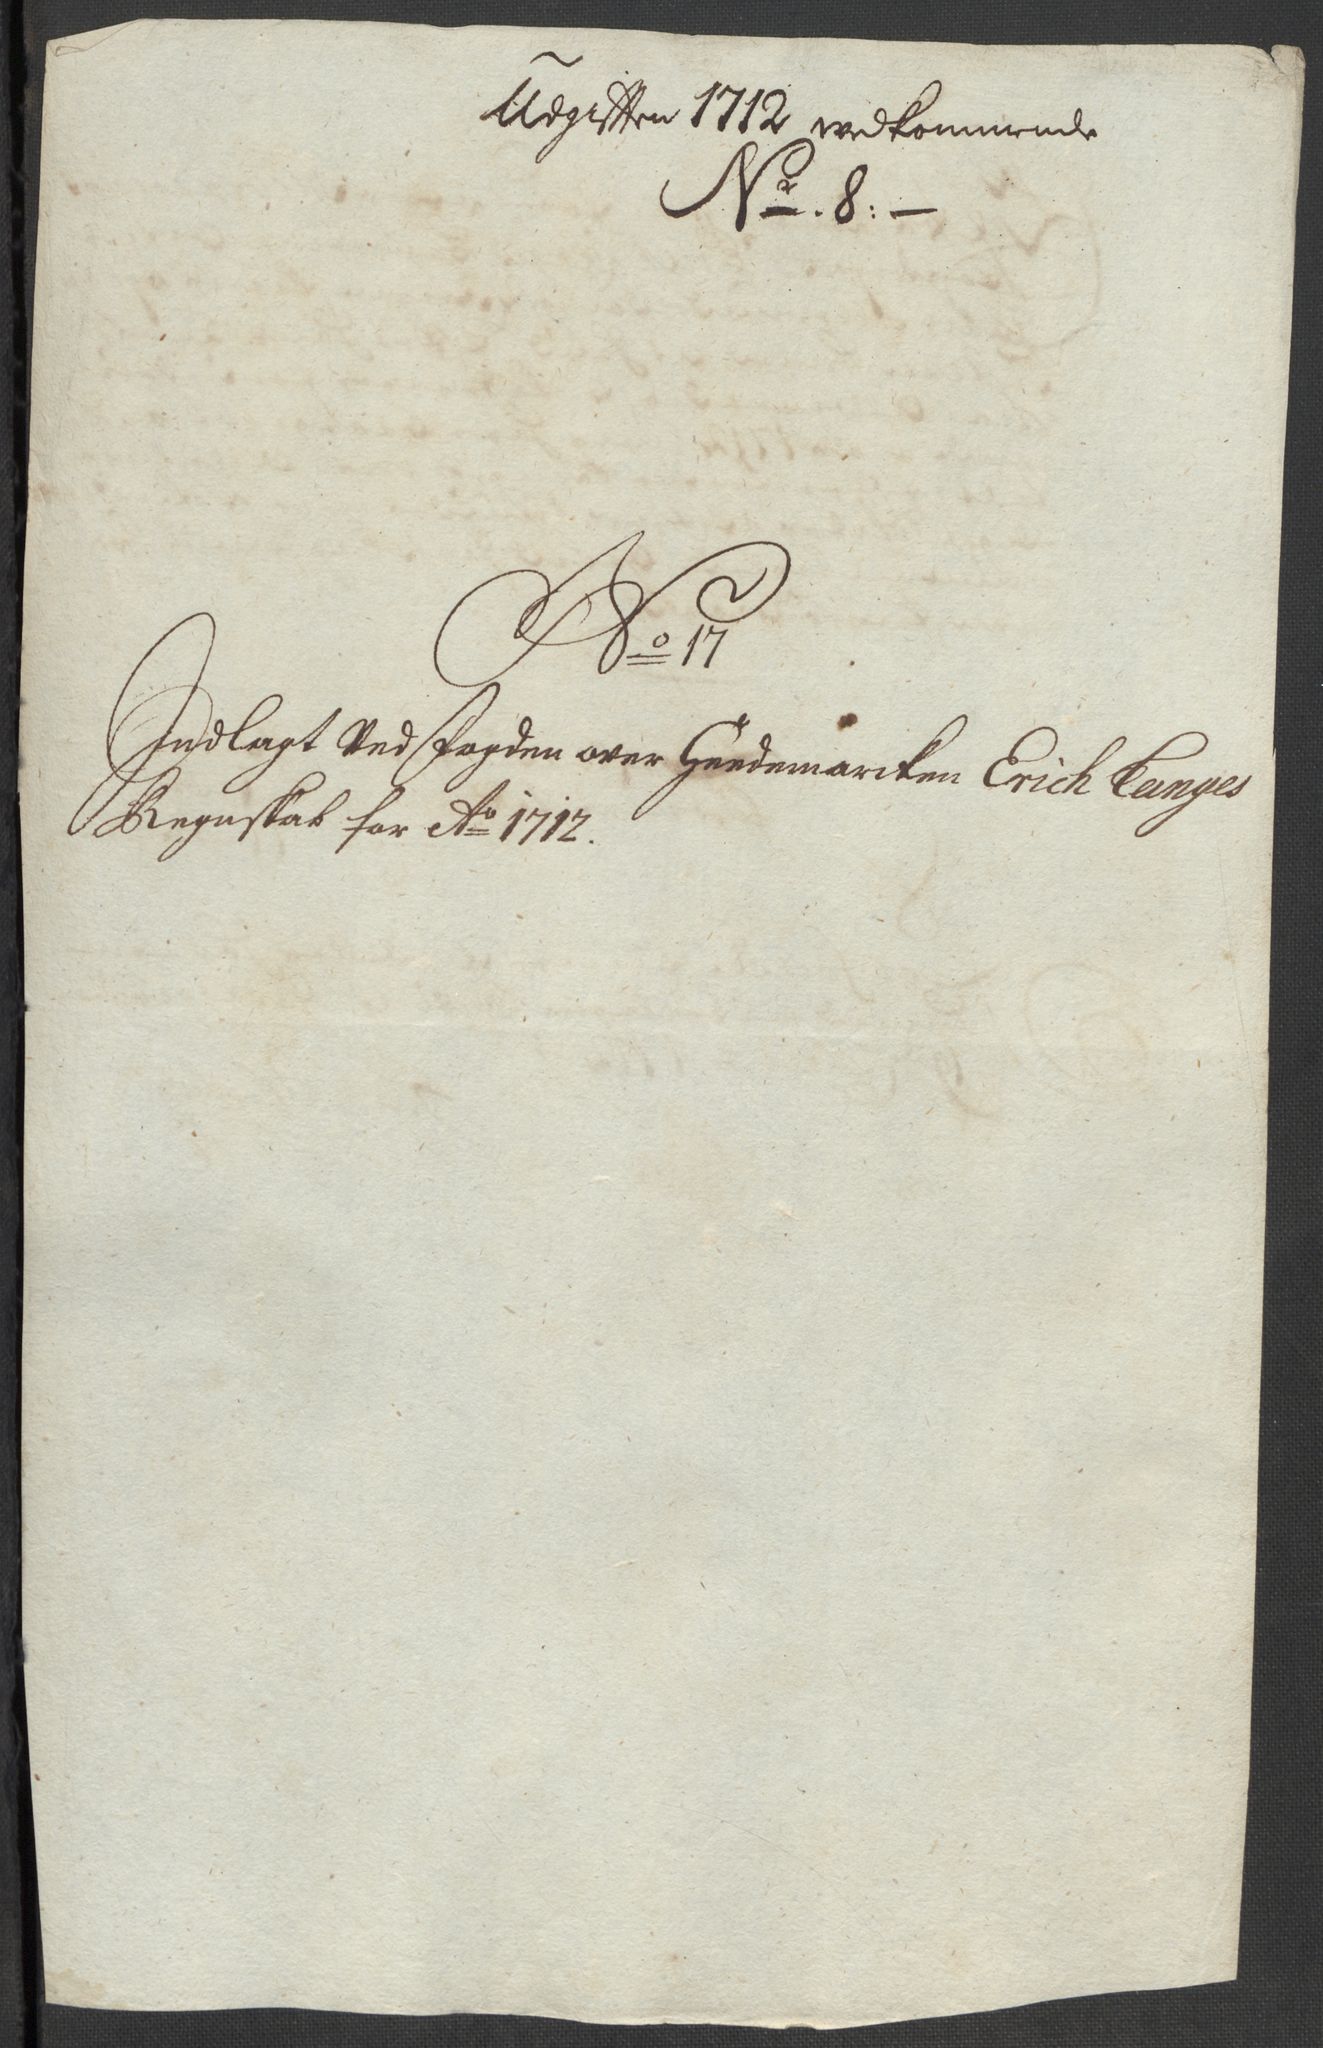 Udgifften 1712 vedkommende
No. 8: —
No 17
Indlagt Ved fogden over Heedemarcken Erich Langes
Regnskab for Ao 1712.